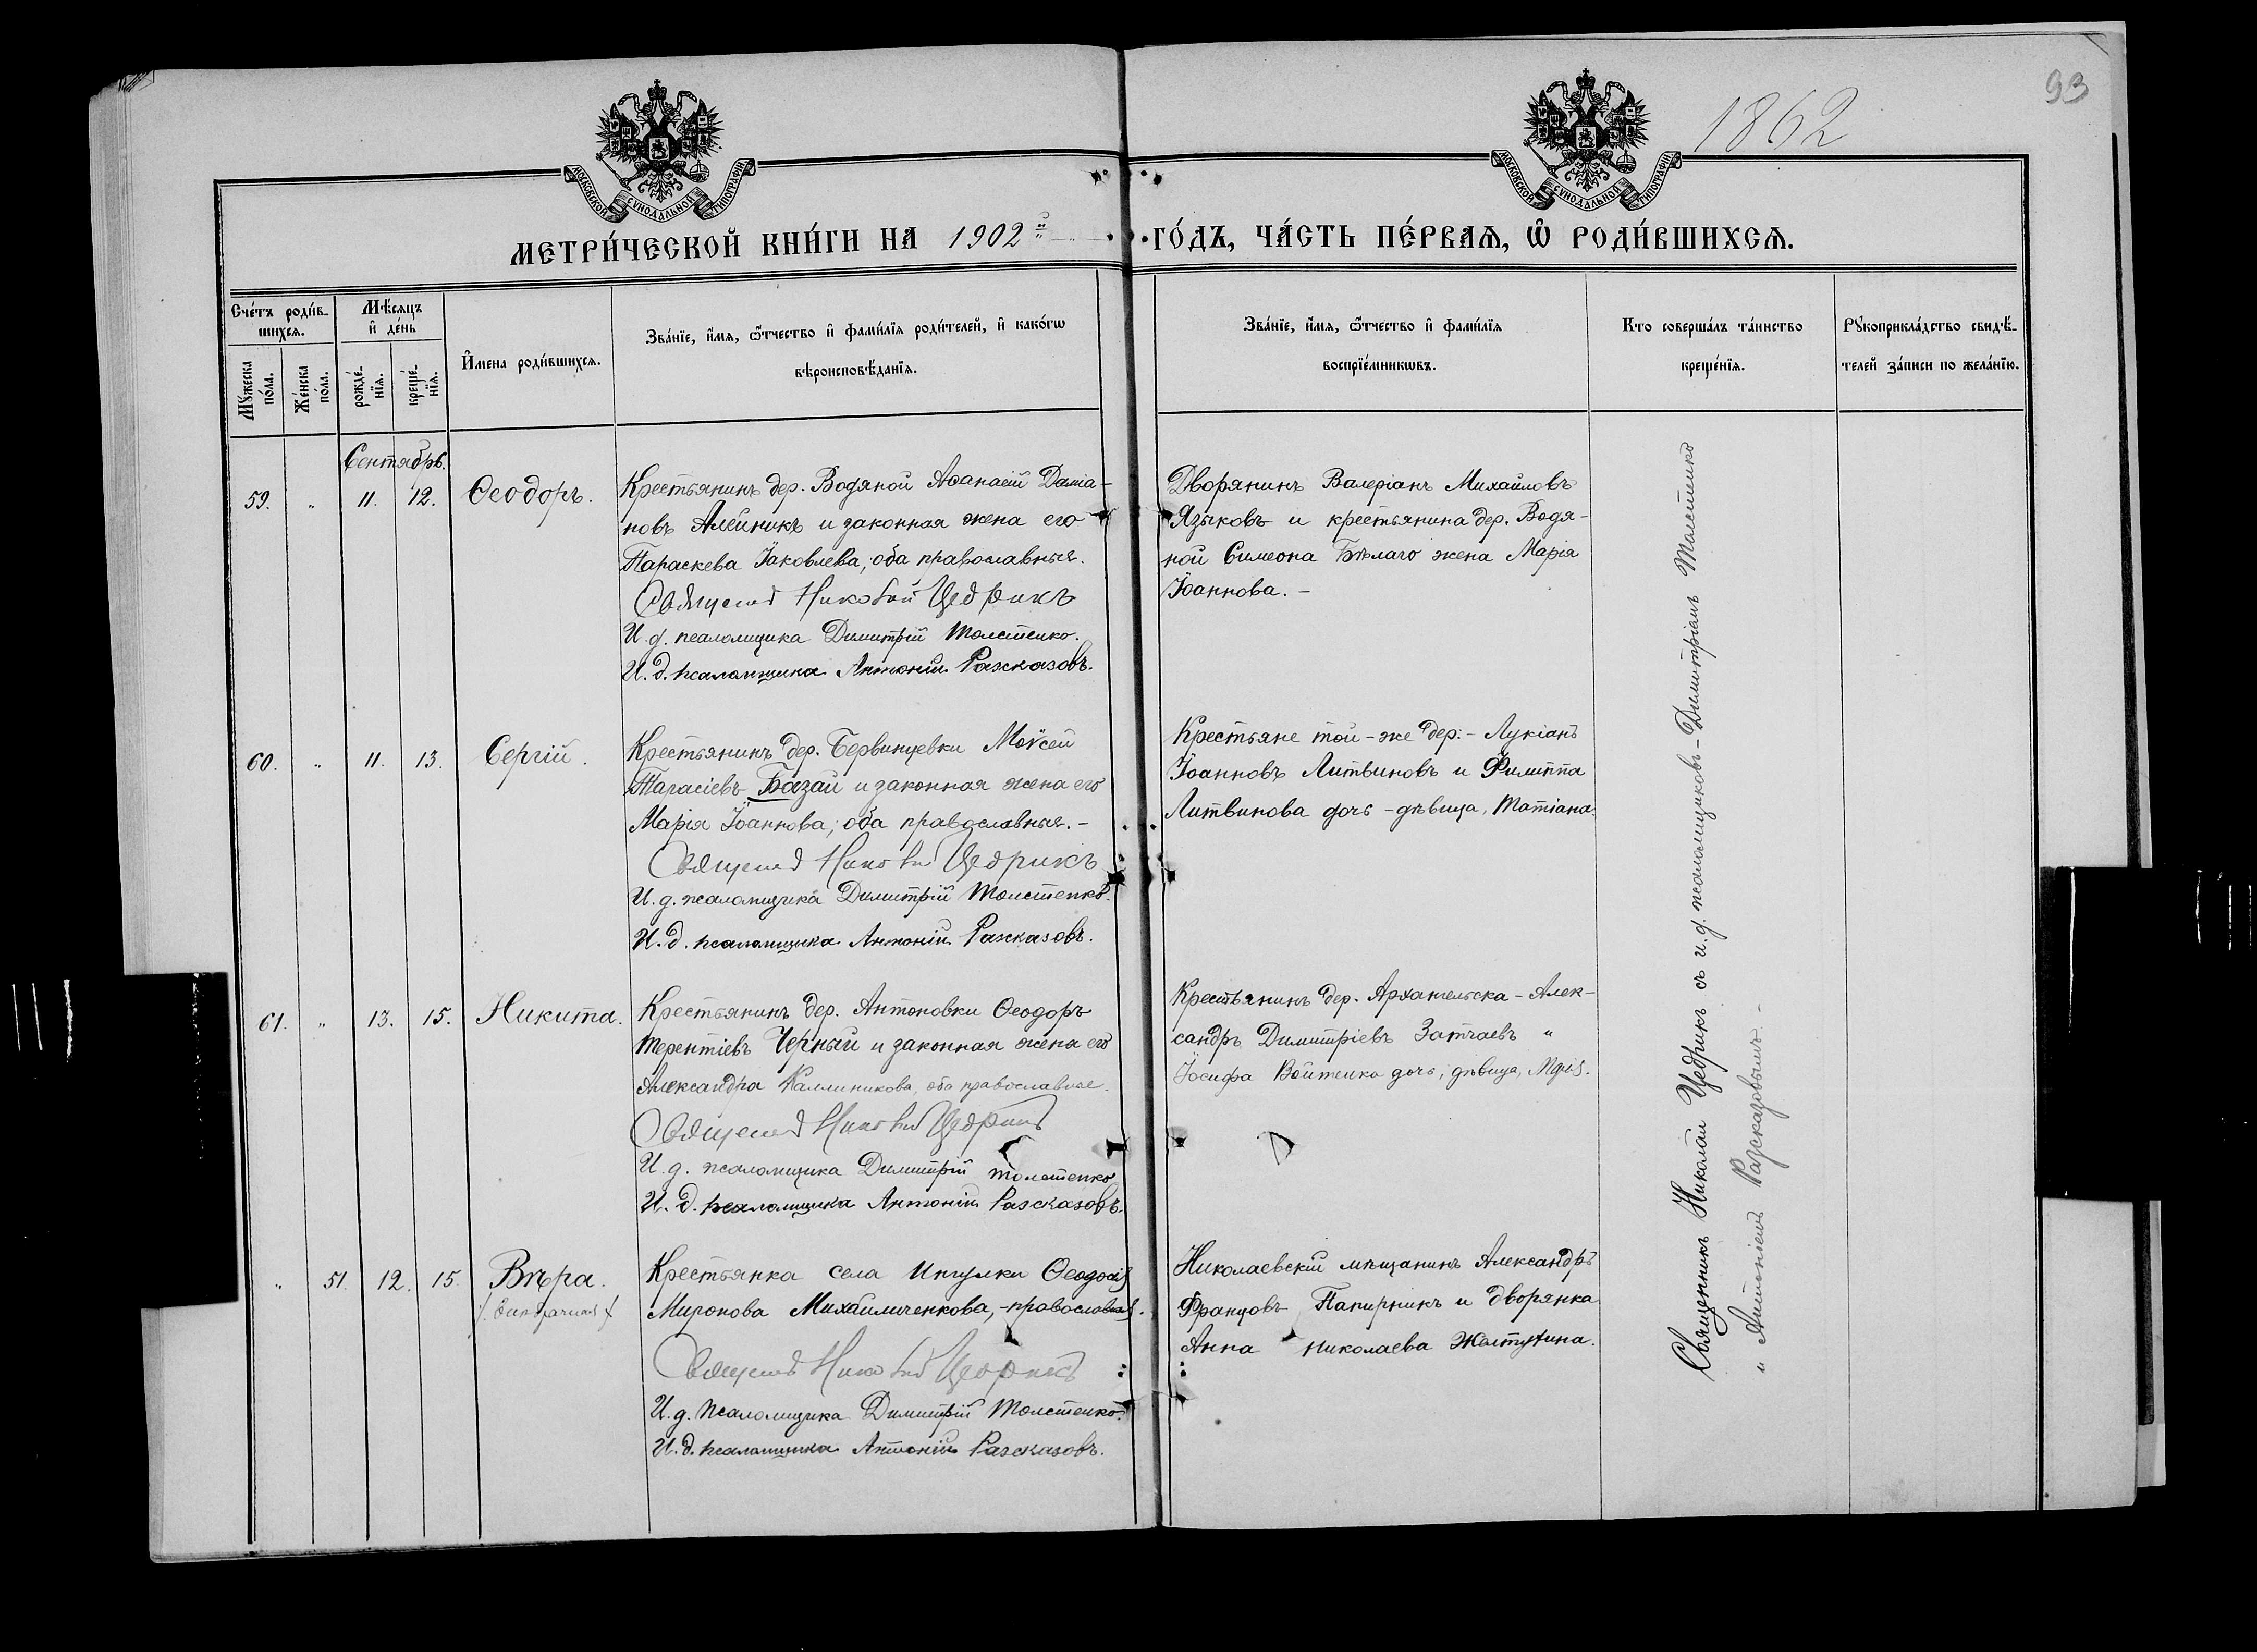 93
1862
МОСКОВСКОЙ СУНОДАЛЬНОЙ ТИПОГРАФІИ
МОСКОВСКОЙ СУНОДАЛЬНОЙ ТИПОГРАФІИ
МЕТРИ́ЧЕСКОЙ КНИ́ГИ НА 1902й ГО́ДЪ, ЧА́СТЬ ПЕ́РВАѦ, Ѡ҆ РОДИ́ВШИХСѦ.
Сче́тъ роди́в-
шихсѧ.
Мꙋ́жеска по́ла.
Же́нска по́ла.
Мѣ́сѧцъ
и҆ де́нь
рожде́-
нїѧ.
креще́-
нїѧ.
И҆мена роди́вшихсѧ.
Зва́нїе, и҆́мѧ, ѻ҆́тчество и҆ фами́лїѧ роди́телей, и҆ како́гѡ
вѣроисповѣ́данїѧ.
Зва́нїе, и҆́мѧ, ѻ҆́тчество и҆ фами́лїѧ
воспрїе́мникѡвъ.
Кто соверша́лъ та́инство
креще́нїѧ.
Рꙋкоприкла́дство свидѣ́-
телей за́писи по жела́нїю.
Сентябрь.
59. " 11. 12. Ѳеодоръ.
Крестьянинъ дер. Водяной Аѳанасій Даміа-
новъ Алейникъ и законная жена его
Параскева Іаковлева, оба православные.
Священ Николай Цедрикъ
И. д. псаломщика Димитрій Толстенко.
И. д. псаломщика Антоній Разсказовъ.
Дворянинъ Валеріанъ Михайловъ
Языковъ и крестьянина дер. Водя-
ной Симеона Бѣлаго жена Марія
Іоаннова. -
60. " 11. 13. Сергій.
Крестьянинъ дер. Бервинцевки Моѵсей
Тарасіевъ Базай и законная жена его
Марія Іоаннова; оба православные. -
Священ Николай Цедрикъ
И. д. псаломщика Димитрій Толстенко.
И. д. псаломщика Антоній Разсказовъ.
Крестьяне той-же дер. - Лукіанъ
Іоанновъ Литвиновъ и Филиппа
Литвинова дочь - дѣвица, Татіана.
61. " 13. 15. Никита.
Крестьянинъ дер. Антоновки Ѳеодоръ
Терентіевъ Черный и законная жена его
Александра Каллиникова, оба православные.
Священ Николай Цедрикъ
И. д. псаломщика Димитрій Толстенко
И. д. псаломщика Антоній Разсказовъ.
Крестьянинъ дер. Архангельска - Алек-
сандръ Димитріевъ "
Іосифа Войтенко дочь, дѣвица,
" 51. 12. 15. Вѣра.
Крестьянка села Ингулки Ѳеодосія
Миронова Михайличенкова, - православная.
Священ Николай Цедрикъ
И. д. псаломщика Димитрій Толстенко.
И. д. псаломщика Антоній Разсказовъ.
Николаевскій мѣщанинъ Александръ
Францовъ Папирникъ и дворянка
Анна Николаева Желтухина.
Священникъ Николай Цедрикъ съ и. д. псаломщиковъ - Димитріемъ Толстенко
и Антоніемъ Разсказовымъ. -